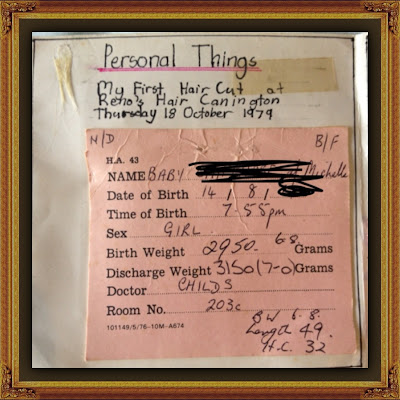 Personal Things
My First Hair Cut at
Reno's Hair Canington
Thursday 18 October 1979
N/D B/F
H.A. 43
NAME BABY Michelle
Date of Birth 14 / 8 /
Time of Birth 7-55pm
Sex GIRL
Birth Weight 2950. 6-8 Grams
Discharge Weight 3150 (7-0) Grams
Doctor CHILDS
Room No. 203c
BW 6.8.
Length 49.
H.C. 32
101149/5/76-10M-A674